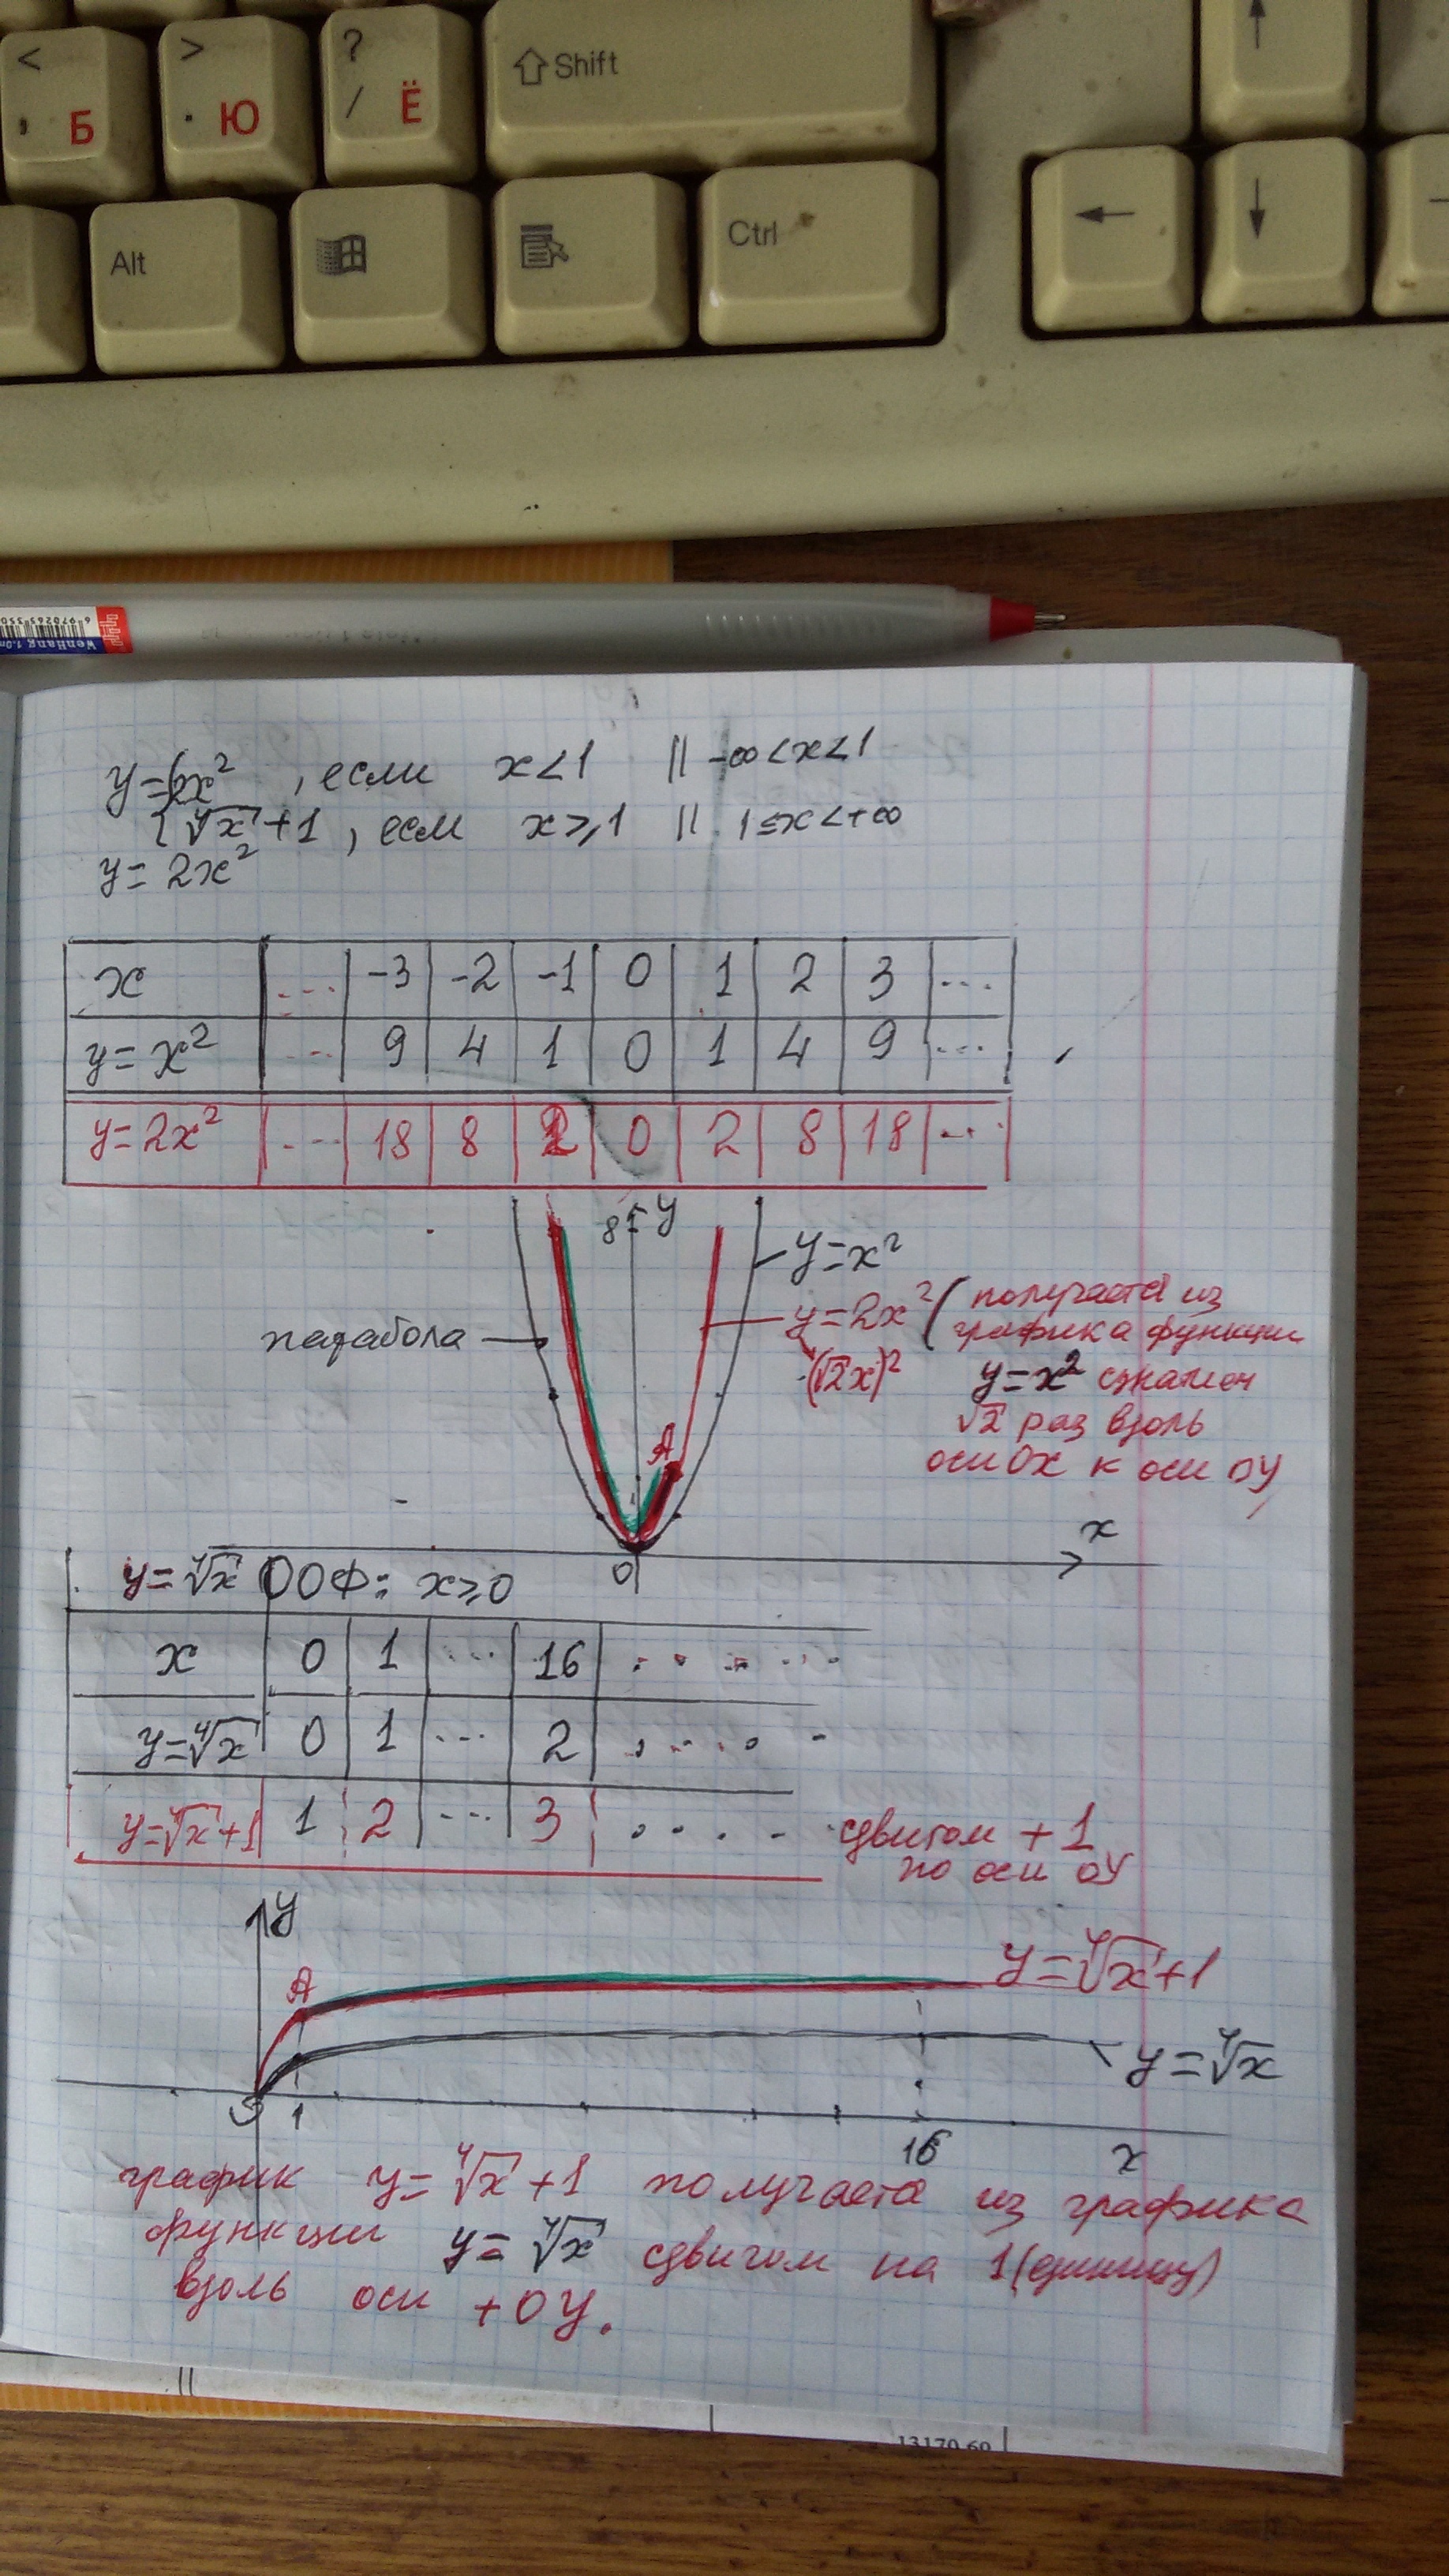 < , Б
> . Ю
? / Ё
Shift
↑
Alt
Ctrl
← ↓
WenHang
y= { 2x² , если x<1 || -∞<x<1
{ ∜x +1 , если x≥1 || 1≤x<+∞
y= 2x²
x ... -3 -2 -1 0 1 2 3 ...
y= x² ... 9 4 1 0 1 4 9 ...
y=2x² ... 18 8 2 0 2 8 18 ...
8 y
y=x²
парабола
y=2x² ( получается из
графика функции
(√2x)² y=x² сжатием
√2 раз вдоль
оси OX к оси OY
A
x
0
y= ∜x ООФ: x≥0
x 0 1 ... 16 .....
y=∜x 0 1 ... 2 ....
y=∜x+1 1 2 ... 3 ....
сдвигом +1
по оси OY
y
A
y=∜x+1
y=∜x
0 1 16 x
график y= ∜x +1 получается из графика
функции y= ∜x сдвигом на 1(единицу)
вдоль оси +OY.
13170.60